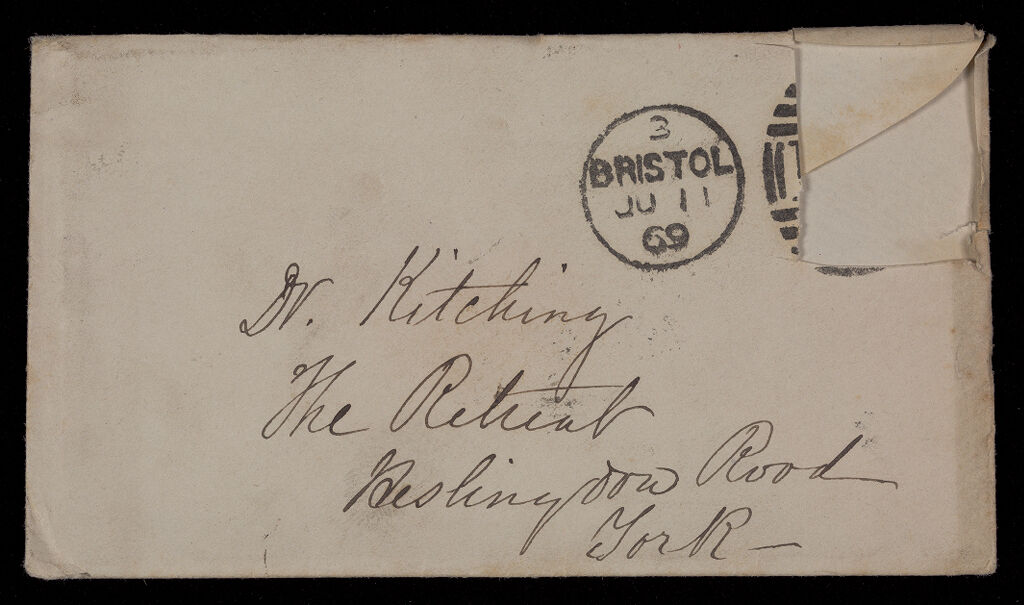 3
BRISTOL
JU 11
69
Dr. Kitching
The Retreat
Heslingdon Road
York